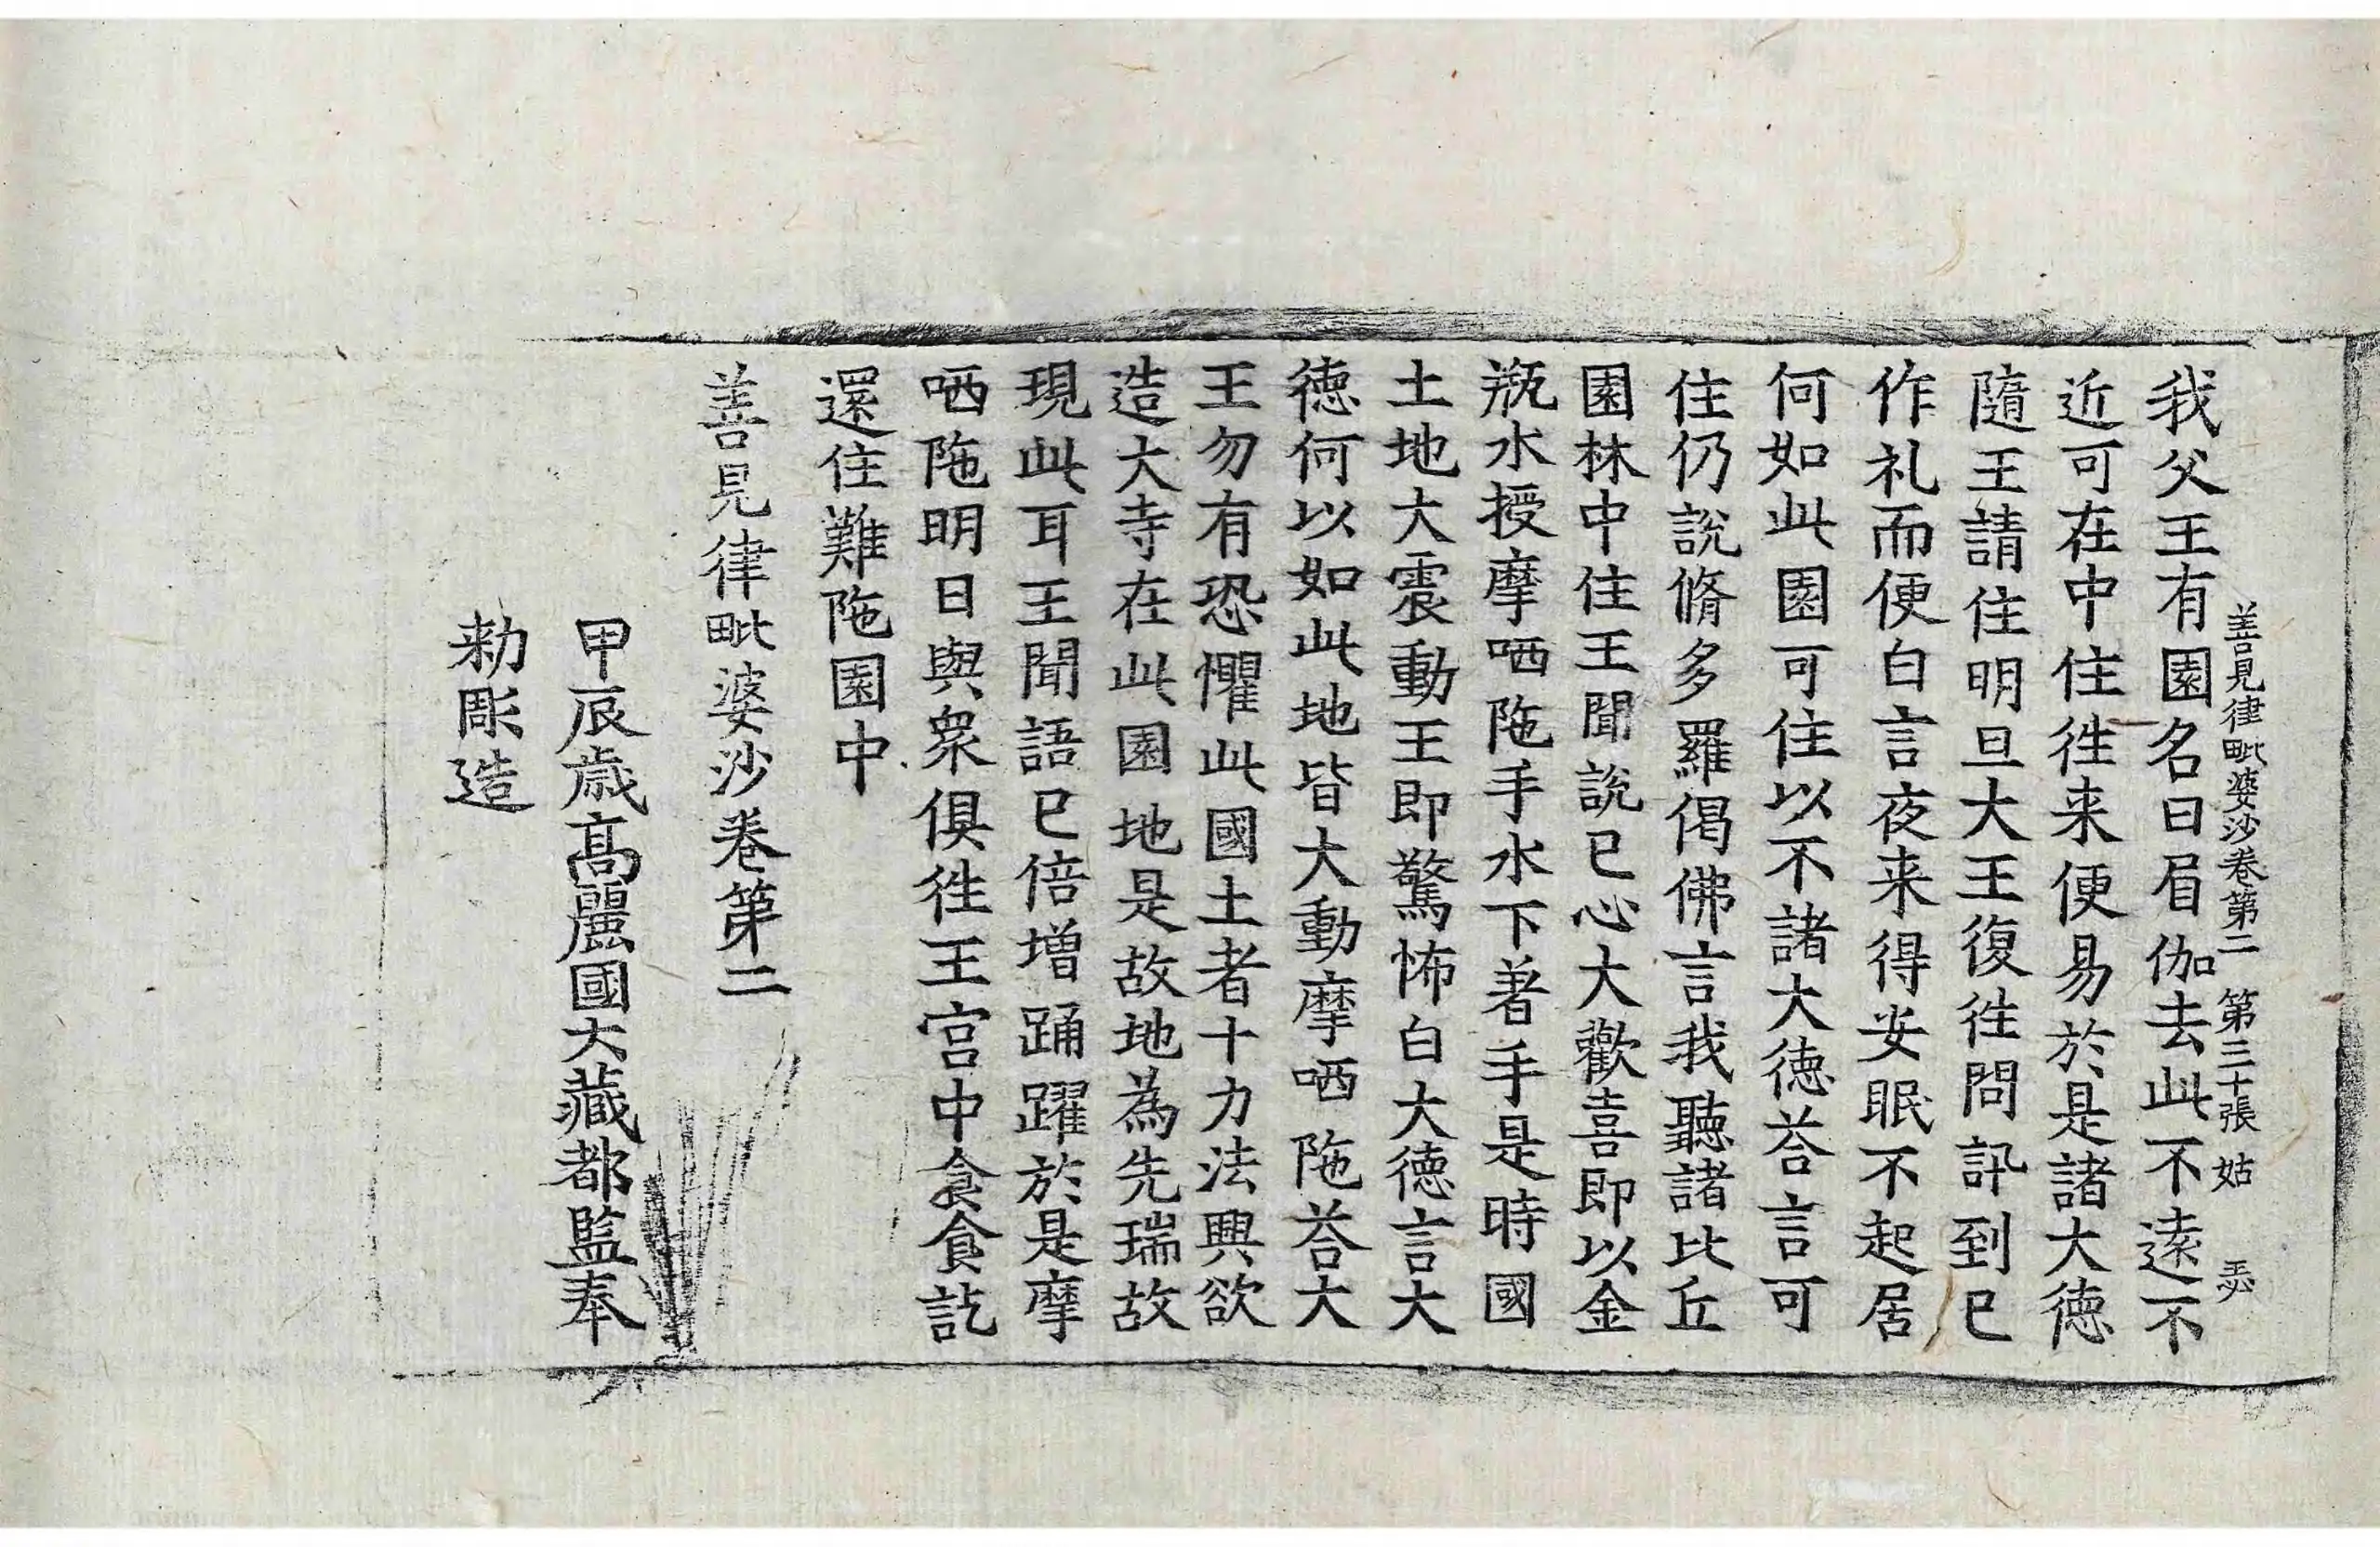 善見律毗婆沙卷第二 第三十張 姑
我父王有園名曰眉伽去此不遠不
近可在中住徃来便易於是諸大德
隨王請住明旦大王復徃問訊到已
作礼而便白言夜来得安眠不起居
何如此園可住以不諸大德荅言可
住仍說脩多羅偈佛言我聽諸比丘
園林中住王聞說已心大歡喜即以金
瓶水授摩哂陁手水下著手是時國
土地大震動王即驚怖白大德言大
德何以如此地皆大動摩哂陁荅大
王勿有恐懼此國土者十力法興欲
造大寺在此園地是故地為先瑞故
現此耳王聞語已倍增踊躍於是摩
哂陁明日與衆俱徃王宮中食食訖
還住難陁園中
善見律毗婆沙卷第二
甲辰歲高麗國大藏都監奉
勑彫造